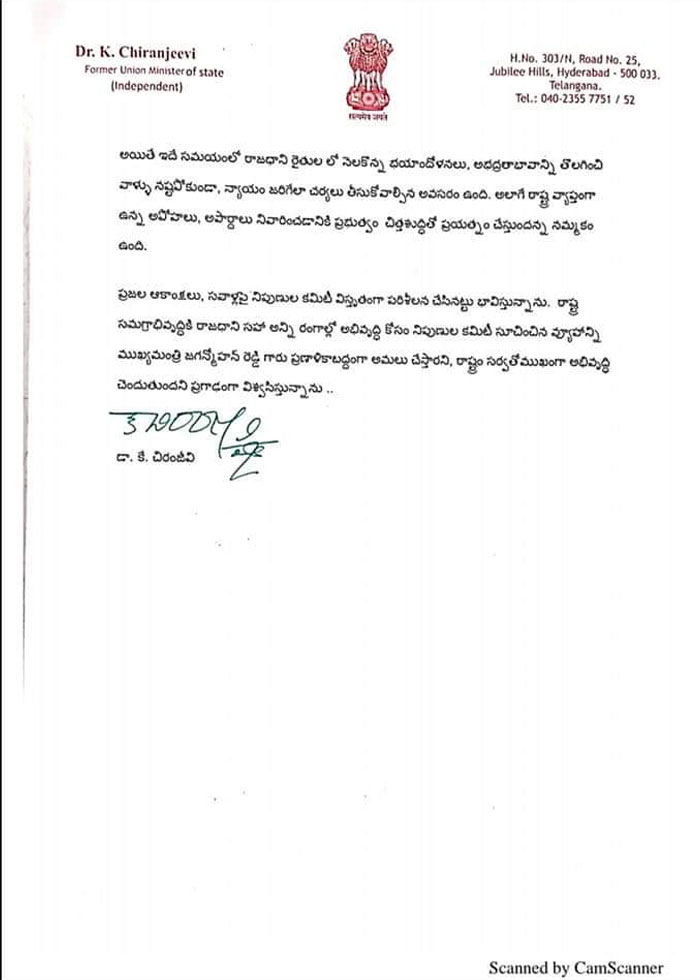 Dr. K. Chiranjeevi
Former Union Minister of state
(Independent)
सत्यमेव जयते
H.No. 303/N, Road No. 25,
Jubilee Hills, Hyderabad - 500 033.
Telangana.
Tel.: 040-2355 7751 / 52
అయితే ఇదే సమయంలో రాజధాని రైతుల లో నెలకొన్న భయాందోళనలు, అభద్రతాభావాన్ని తొలగించి
వాళ్ళు నష్టపోకుండా, న్యాయం జరిగేలా చర్యలు తీసుకోవాల్సిన అవసరం ఉంది. అలాగే రాష్ట్ర వ్యాప్తంగా
ఉన్న అపోహలు, అపార్థాలు నివారించడానికి ప్రభుత్వం చిత్తశుద్ధితో ప్రయత్నం చేస్తుందన్న నమ్మకం
ఉంది.
ప్రజల ఆకాంక్షలు, సవాళ్లపై నిపుణుల కమిటీ విస్తృతంగా పరిశీలన చేసినట్టు భావిస్తున్నాను. రాష్ట్ర
సమగ్రాభివృద్ధికి రాజధాని సహా అన్ని రంగాల్లో అభివృద్ధి కోసం నిపుణుల కమిటీ సూచించిన వ్యూహాన్ని
ముఖ్యమంత్రి జగన్మోహన్ రెడ్డి గారు ప్రణాళికాబద్ధంగా అమలు చేస్తారని, రాష్ట్రం సర్వతోముఖంగా అభివృద్ధి
చెందుతుందని ప్రగాఢంగా విశ్వసిస్తున్నాను ..
డా. కే. చిరంజీవి
Scanned by CamScanner